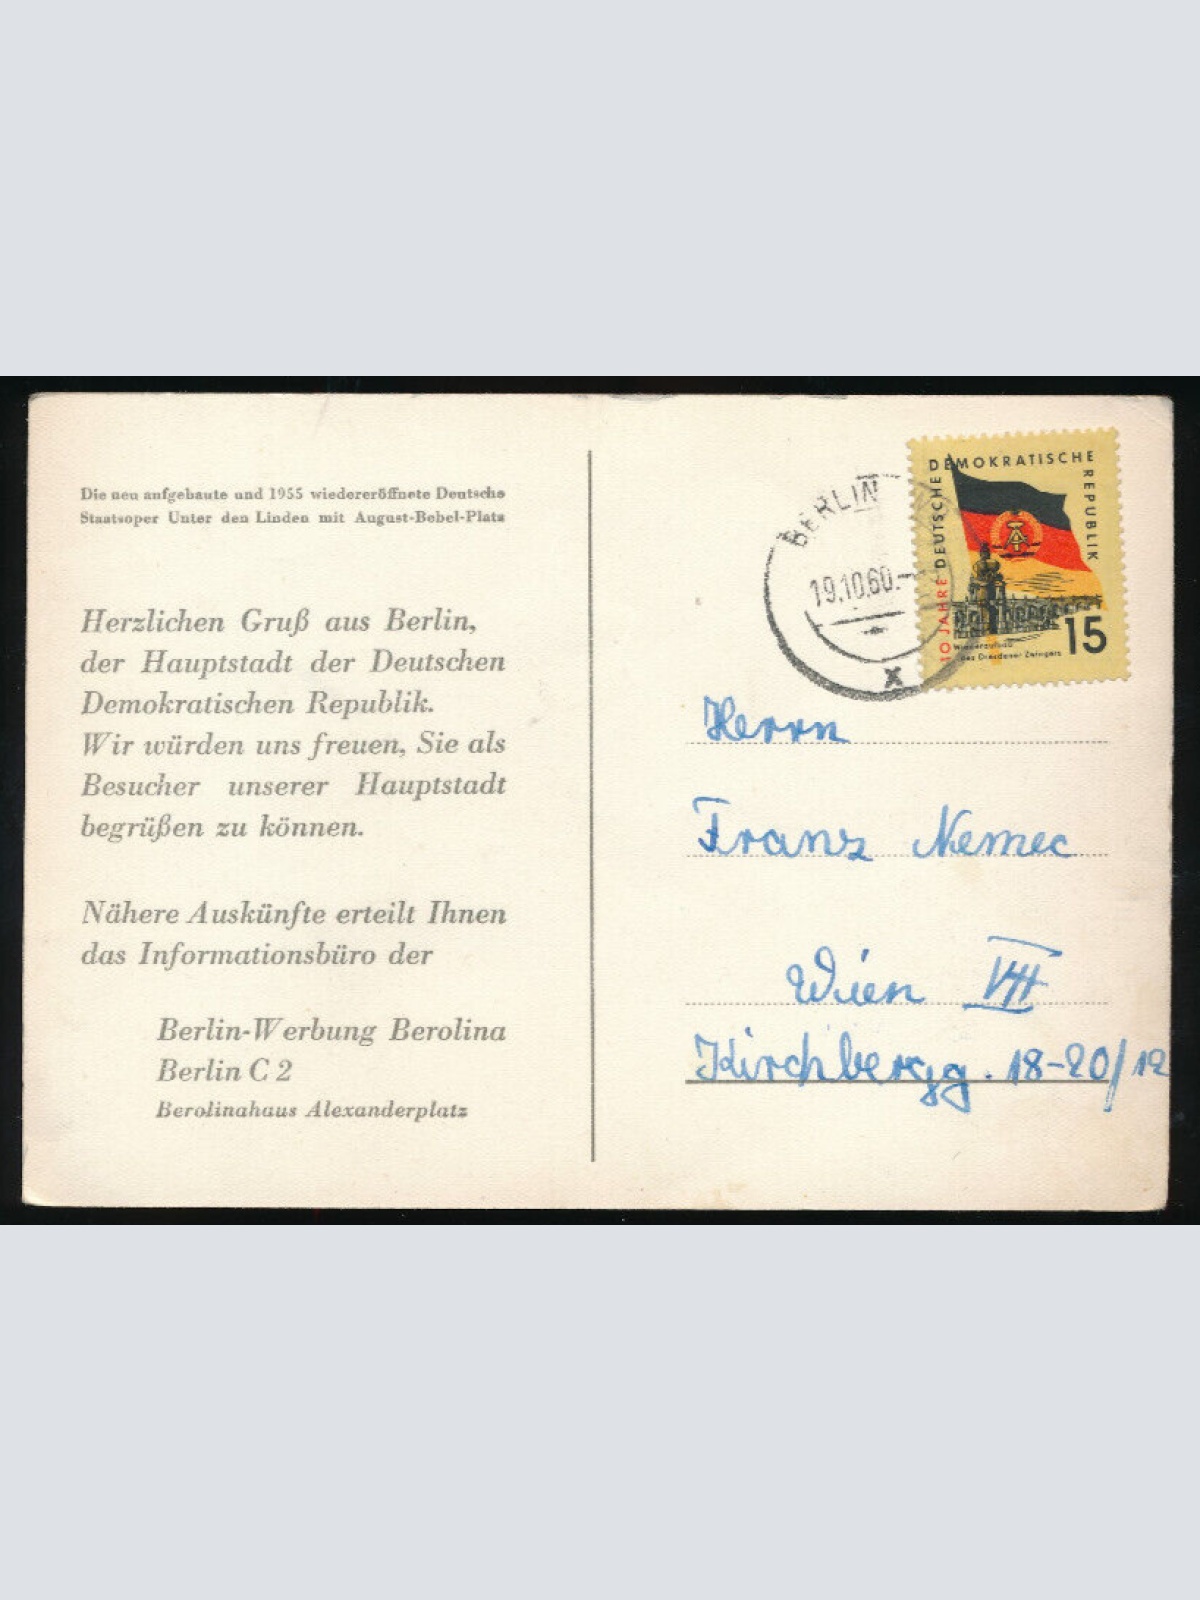 Die neu aufgebaute und 1955 wiedereröffnete Deutsche
Staatsoper Unter den Linden mit August-Bebel-Platz
Herzlichen Gruß aus Berlin,
der Hauptstadt der Deutschen
Demokratischen Republik.
Wir würden uns freuen, Sie als
Besucher unserer Hauptstadt
begrüßen zu können.
Nähere Auskünfte erteilt Ihnen
das Informationsbüro der
Berlin-Werbung Berolina
Berlin C 2
Berolinahaus Alexanderplatz
BERLIN
19.10.60.-
x
10 JAHRE DEUTSCHE
DEMOKRATISCHE
REPUBLIK
Wiederaufbau
des Dresdener Zwingers
15
Herrn
Franz Nemec
Wien VII
Kirchbergg. 18-20/12